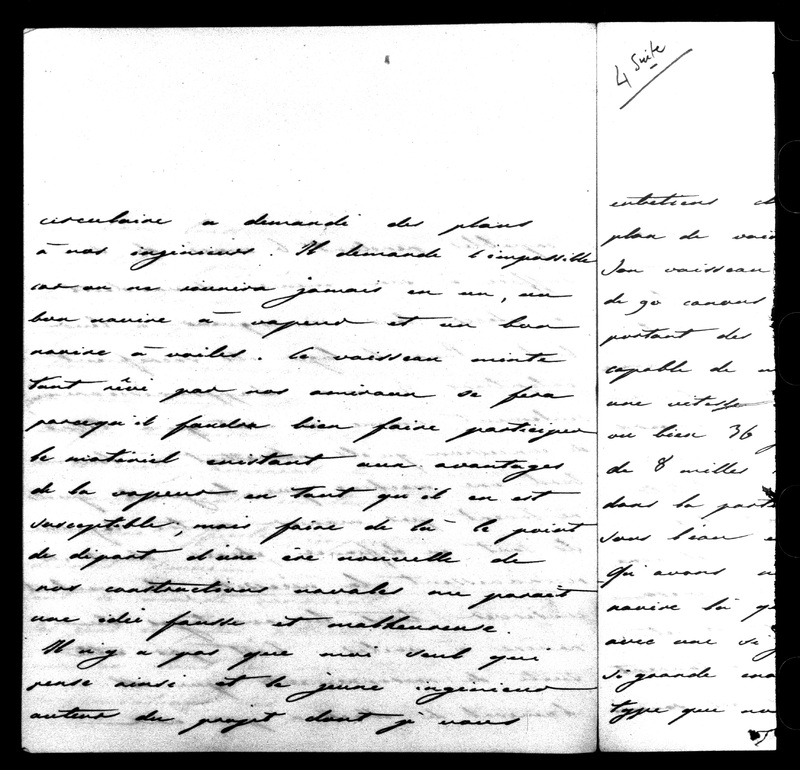 circulaire a demandé des plans
à nos ingénieurs. Il demande l'impossible
car on ne réunira jamais en un, un
bon navire à vapeur et un bon
navire à voiles. Le vaisseau mixte
tant rêvé par nos amiraux se fera
parcequ'il faudra bien faire participer
le matériel existant aux avantages
de la vapeur en tant qu'il en est
susceptible, mais faire de là le point
de départ d'une ère nouvelle de
nos constructions navales me parait
une idée fausse et malheureuse.
Il n'y a pas que moi seul qui
pense ainsi et le jeune ingénieur
auteur du projet dont je vous
4 Suite
entretiens
plan de
Son vaisseau
de 90 canons
portant des
capable de
une vitesse
ou bien 36
de 8 milles
dans la
sous l'eau
Qu'avons
navire là
avec une
si grande
type que